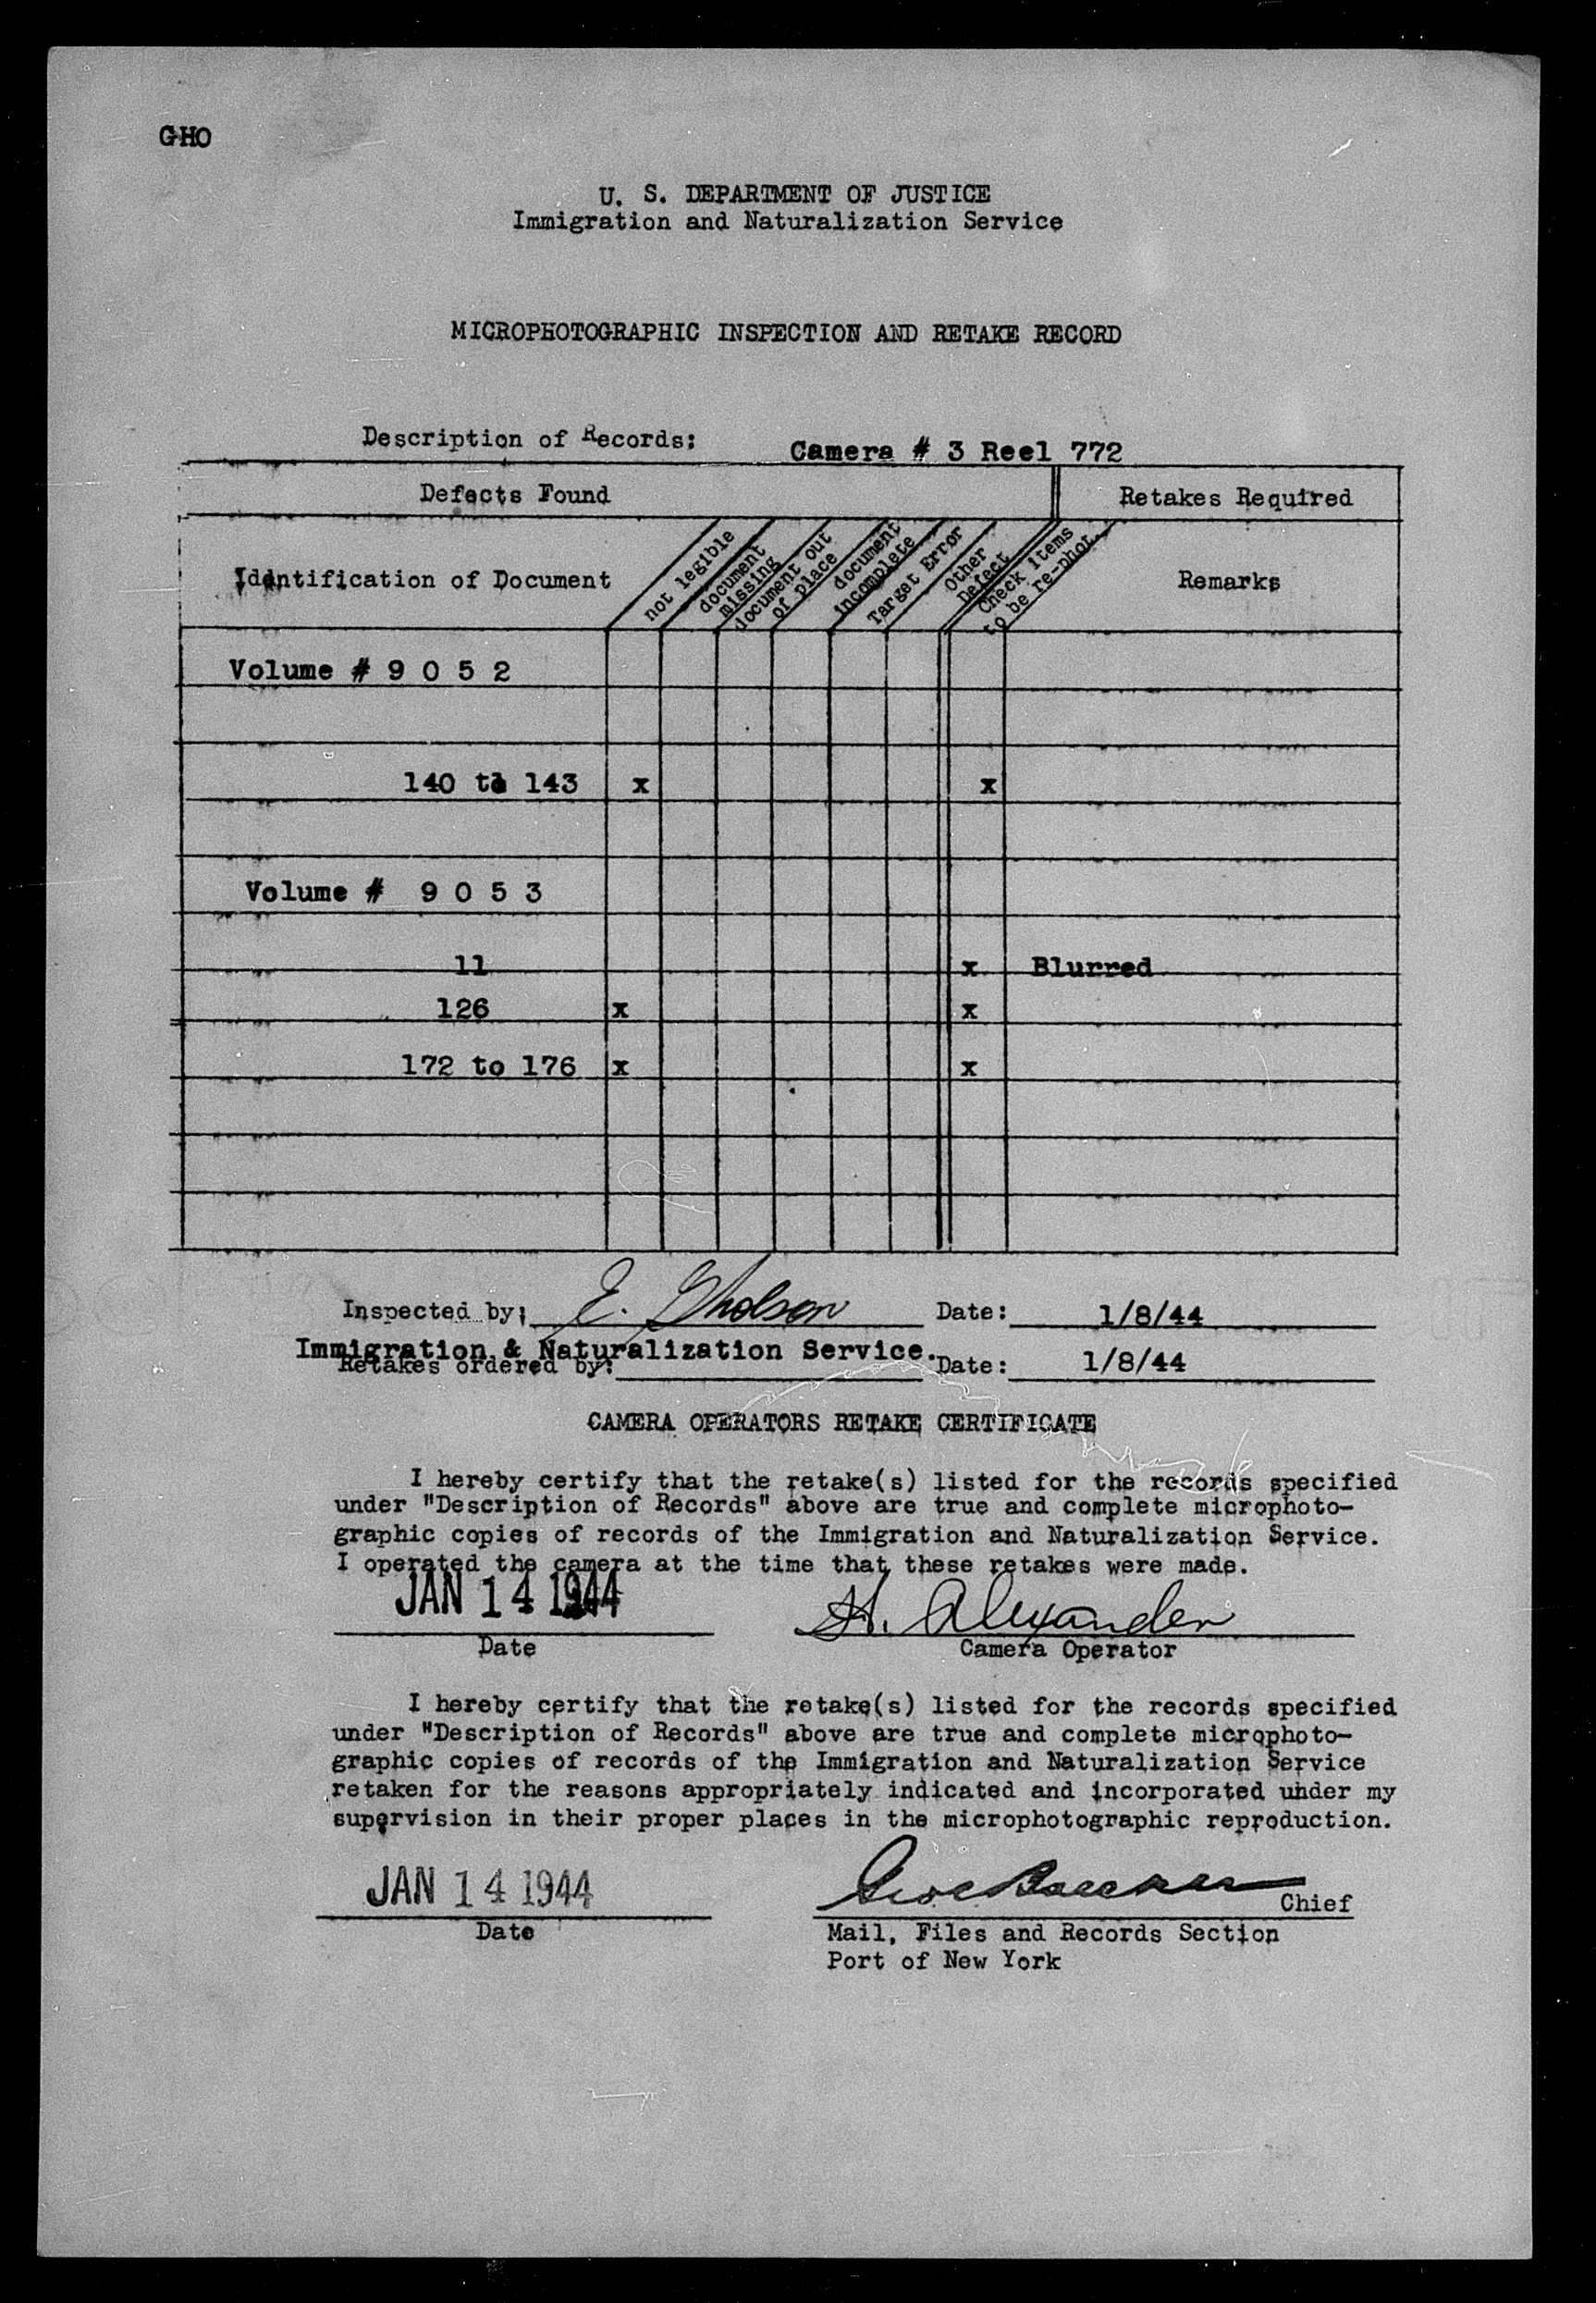 GHO
U. S. DEPARTMENT OF JUSTICE
Immigration and Naturalization Service
MICROPHOTOGRAPHIC INSPECTION AND RETAKE RECORD
Description of Records: Camera # 3 Reel 772
Defects Found Retakes Required
Identification of Document
not legible
document
missing
document out
of place
document
incomplete
Target Error
Other
Defect
Check items
to be re-phot.
Remarks
Volume # 9 0 5 2
140 to 143 x x
Volume # 9 0 5 3
11 x Blurred
126 x x
172 to 176 x x
Inspected by: E. Gholson Date: 1/8/44
Immigration & Naturalization Service.
Retakes ordered by: Date: 1/8/44
CAMERA OPERATORS RETAKE CERTIFICATE
I hereby certify that the retake(s) listed for the records specified
under "Description of Records" above are true and complete microphoto-
graphic copies of records of the Immigration and Naturalization Service.
I operated the camera at the time that these retakes were made.
JAN 14 1944 H. Alexander
Date Camera Operator
I hereby certify that the retake(s) listed for the records specified
under "Description of Records" above are true and complete microphoto-
graphic copies of records of the Immigration and Naturalization Service
retaken for the reasons appropriately indicated and incorporated under my
supervision in their proper places in the microphotographic reproduction.
JAN 14 1944 Chief
Date Mail, Files and Records Section
Port of New York